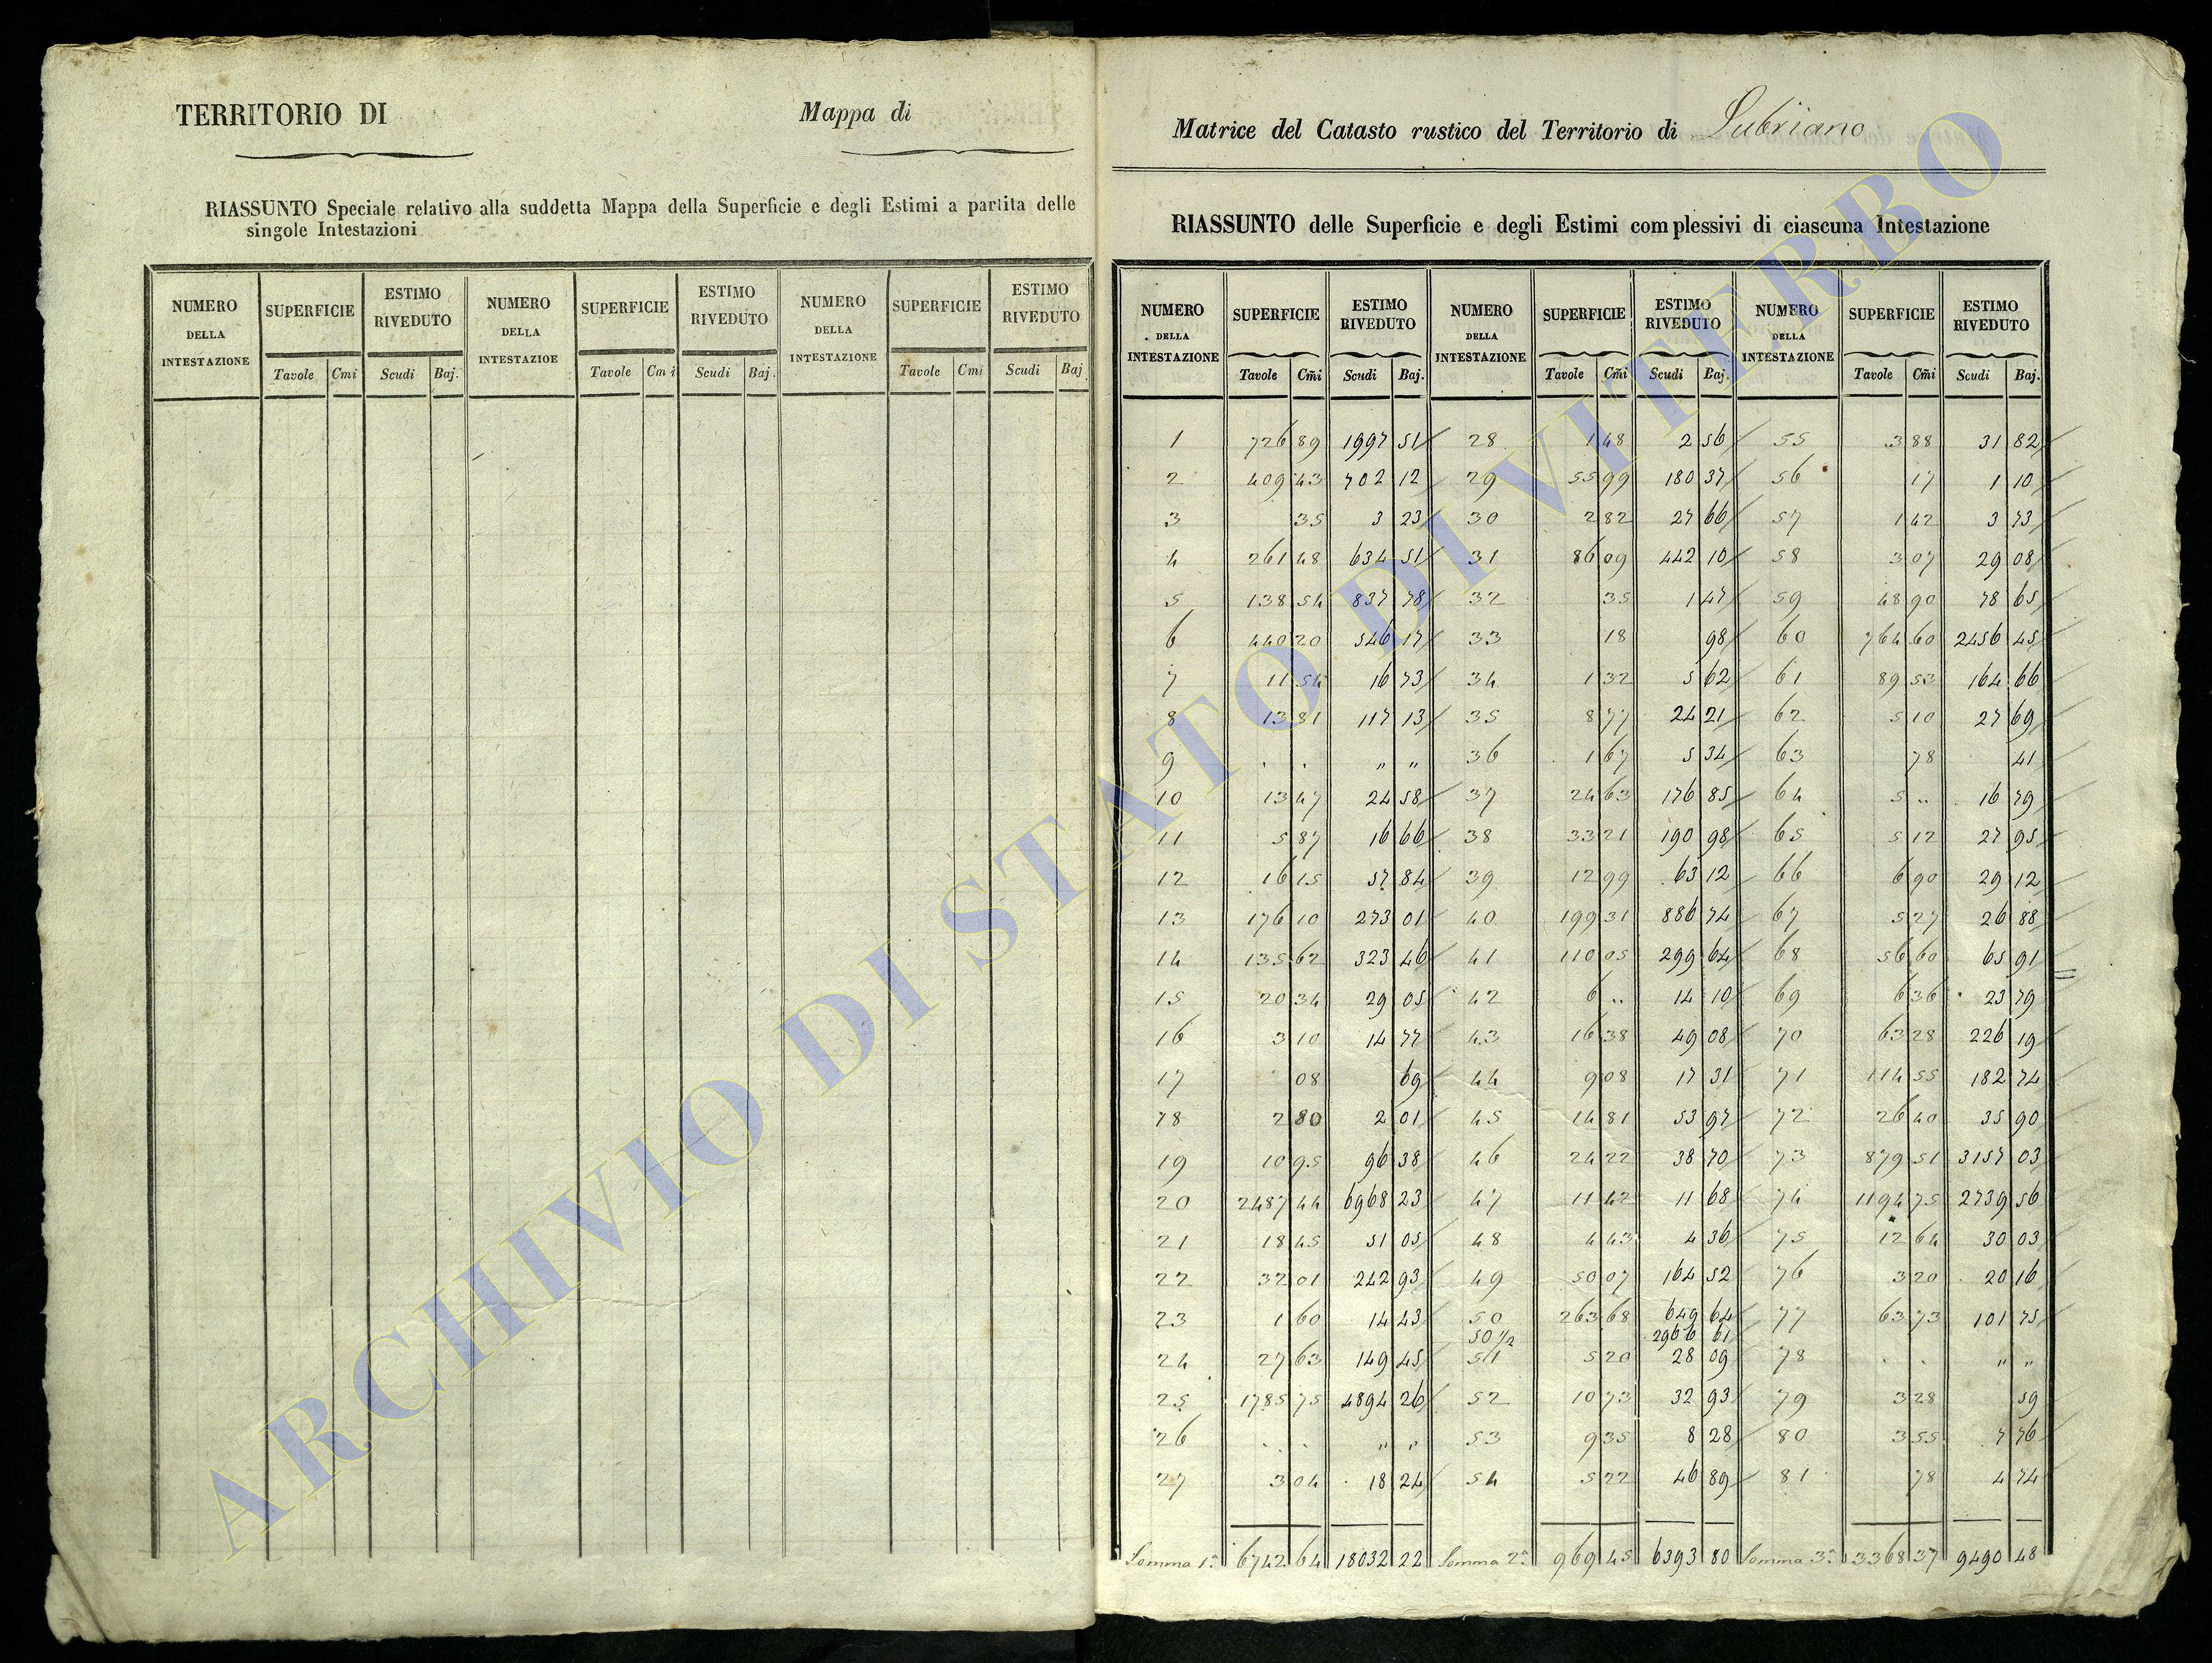 TERRITORIO DI
Mappa di
RIASSUNTO Speciale relativo alla suddetta Mappa della Superficie e degli Estimi a partita delle
singole Intestazioni
NUMERO DELLA INTESTAZIONE SUPERFICIE ESTIMO RIVEDUTO NUMERO DELLA INTESTAZIOE SUPERFICIE ESTIMO RIVEDUTO NUMERO DELLA INTESTAZIONE SUPERFICIE ESTIMO RIVEDUTO
Tavole Cmi Scudi Baj. Tavole Cmi Scudi Baj. Tavole Cmi Scudi Baj.
Matrice del Catasto rustico del Territorio di Lubriano
RIASSUNTO delle Superficie e degli Estimi complessivi di ciascuna Intestazione
NUMERO DELLA INTESTAZIONE SUPERFICIE ESTIMO RIVEDUTO NUMERO DELLA INTESTAZIONE SUPERFICIE ESTIMO RIVEDUTO NUMERO DELLA INTESTAZIONE SUPERFICIE ESTIMO RIVEDUTO
Tavole Cmi Scudi Baj. Tavole Cmi Scudi Baj. Tavole Cmi Scudi Baj.
1 726 89 1997 51 28 1 48 2 56 55 3 88 31 82
2 409 43 702 12 29 55 99 180 37 56 17 1 10
3 35 3 23 30 2 82 27 66 57 1 42 3 73
4 261 48 634 51 31 86 09 442 10 58 3 07 29 08
5 138 54 837 78 32 35 1 47 59 48 90 78 65
6 440 20 546 17 33 18 98 60 764 60 2456 45
7 11 54 16 73 34 1 32 5 62 61 89 53 164 66
8 13 81 117 13 35 8 77 24 21 62 5 10 27 69
9 . . " " 36 1 67 5 34 63 78 41
10 13 47 24 58 37 24 63 176 85 64 5 .. 16 79
11 5 87 16 66 38 33 21 190 98 65 5 12 27 95
12 16 15 57 84 39 12 99 63 12 66 6 90 29 12
13 176 10 273 01 40 199 31 886 74 67 5 27 26 88
14 135 62 323 46 41 110 05 299 64 68 56 60 65 91
15 20 34 29 05 42 6 .. 14 10 69 6 36 23 79
16 3 10 14 77 43 16 38 49 08 70 63 28 226 19
17 08 69 44 9 08 17 31 71 114 55 182 74
18 2 80 2 01 45 14 81 53 97 72 26 40 35 90
19 10 95 96 38 46 24 22 38 70 73 879 51 3157 03
20 2487 44 6968 23 47 11 42 11 68 74 1194 75 2739 56
21 18 45 51 05 48 4 43 4 36 75 12 64 30 03
22 32 01 242 93 49 50 07 164 52 76 3 20 20 16
23 1 60 14 43 50 263 68 649 64 77 63 73 101 75
50 1/2 2966 61
24 27 63 149 45 51 5 20 28 09 78 . . " "
25 1785 75 4894 26 52 10 73 32 93 79 3 28 59
26 . . " " 53 9 35 8 28 80 3 55 7 76
27 3 04 18 24 54 5 22 46 89 81 78 4 74
Somma 1ª 6742 64 18032 22 Somma 2ª 969 45 6393 80 Somma 3ª 3368 37 9490 48
ARCHIVIO DI STATO DI VITERBO